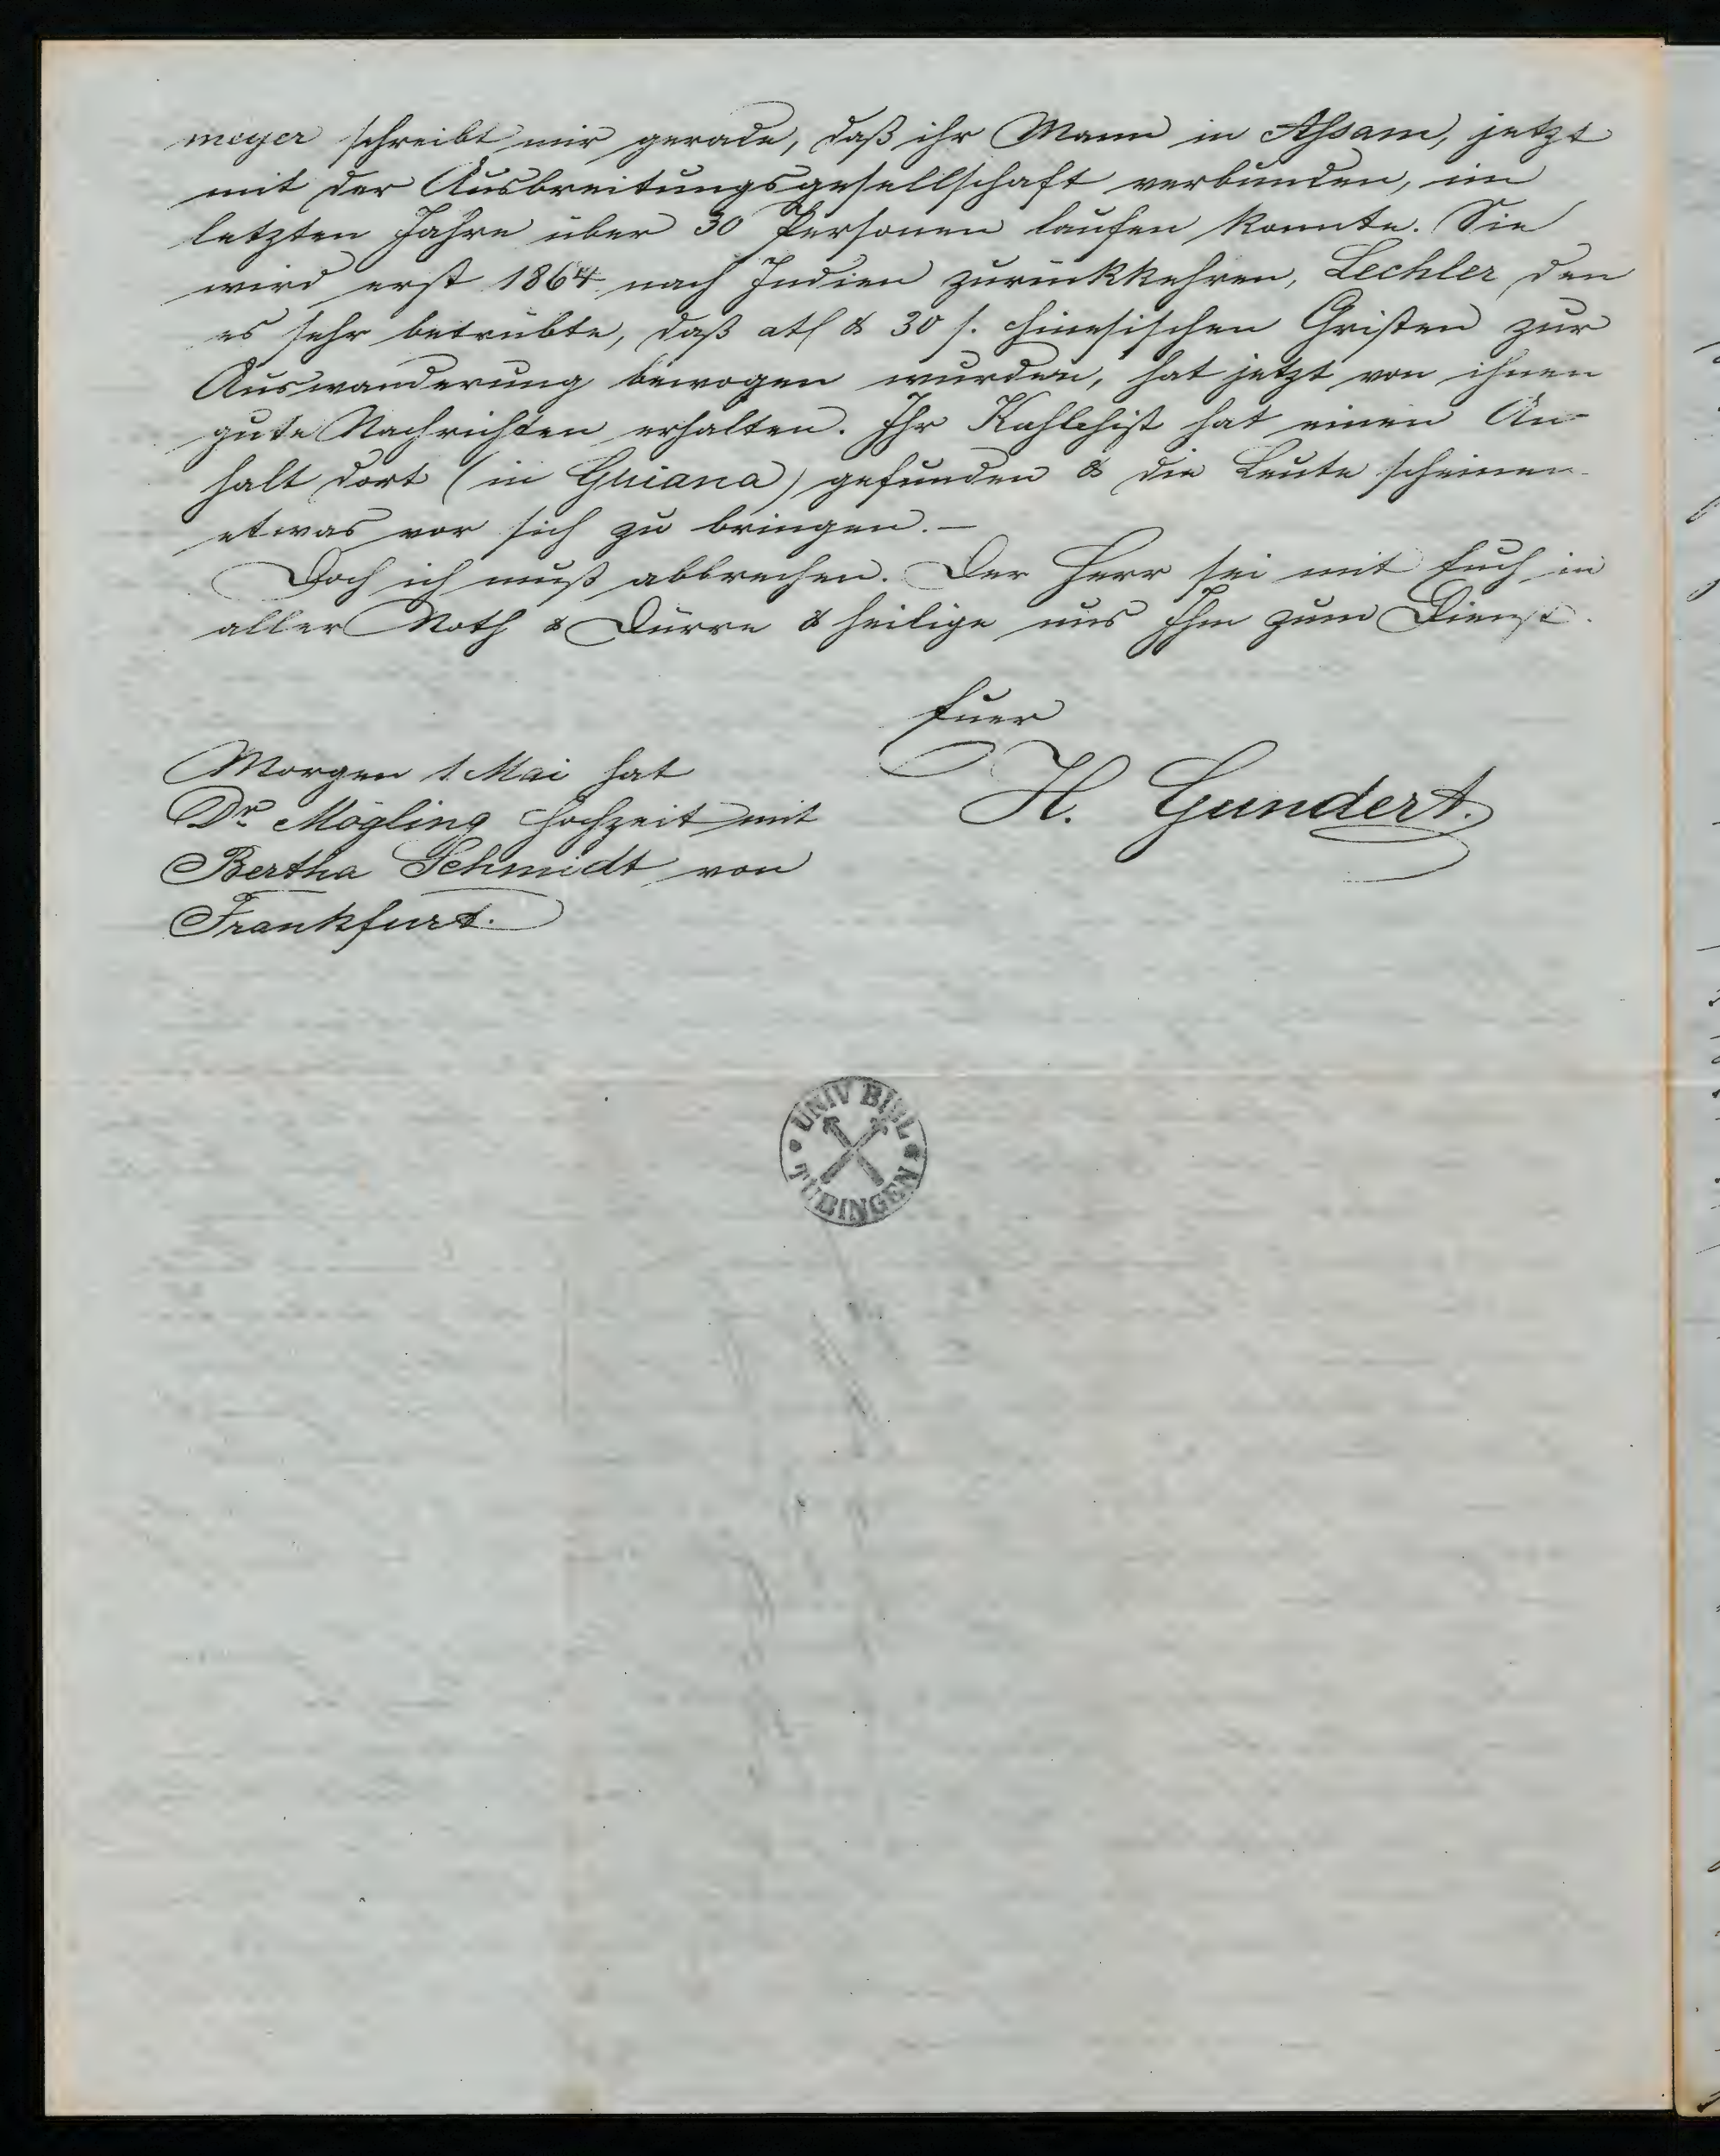 meyer schreibt mir gerade, daß ihr Mann in Assam, jetzt
mit der Ausbreitungsgesellschaft verbunden, im
letzten Jahre über 30 Personen taufen konnte. Sie
wird erst 1864 nach Indien zurückkehren, Lechler den
es sehr betrübte, daß etl & 30 s. chinesischen Christen zur
Auswanderung bewogen wurden, hat jetzt von ihnen
gute Nachrichten erhalten. Ihr Katechist hat einen An-
halt dort (in Guiana) gefunden & die Leute scheinen
etwas vor sich zu bringen. —
Doch ich muß abbrechen. Der Herr sei mit Euch in
aller Noth & Dürre & heilige uns Ihm zum Dienst.
Euer
H. Gundert.
Morgen 1 Mai hat
Dr. Mögling Hochzeit mit
Bertha Schmidt von
Frankfurt.
UNIV BIBL
TÜBINGEN